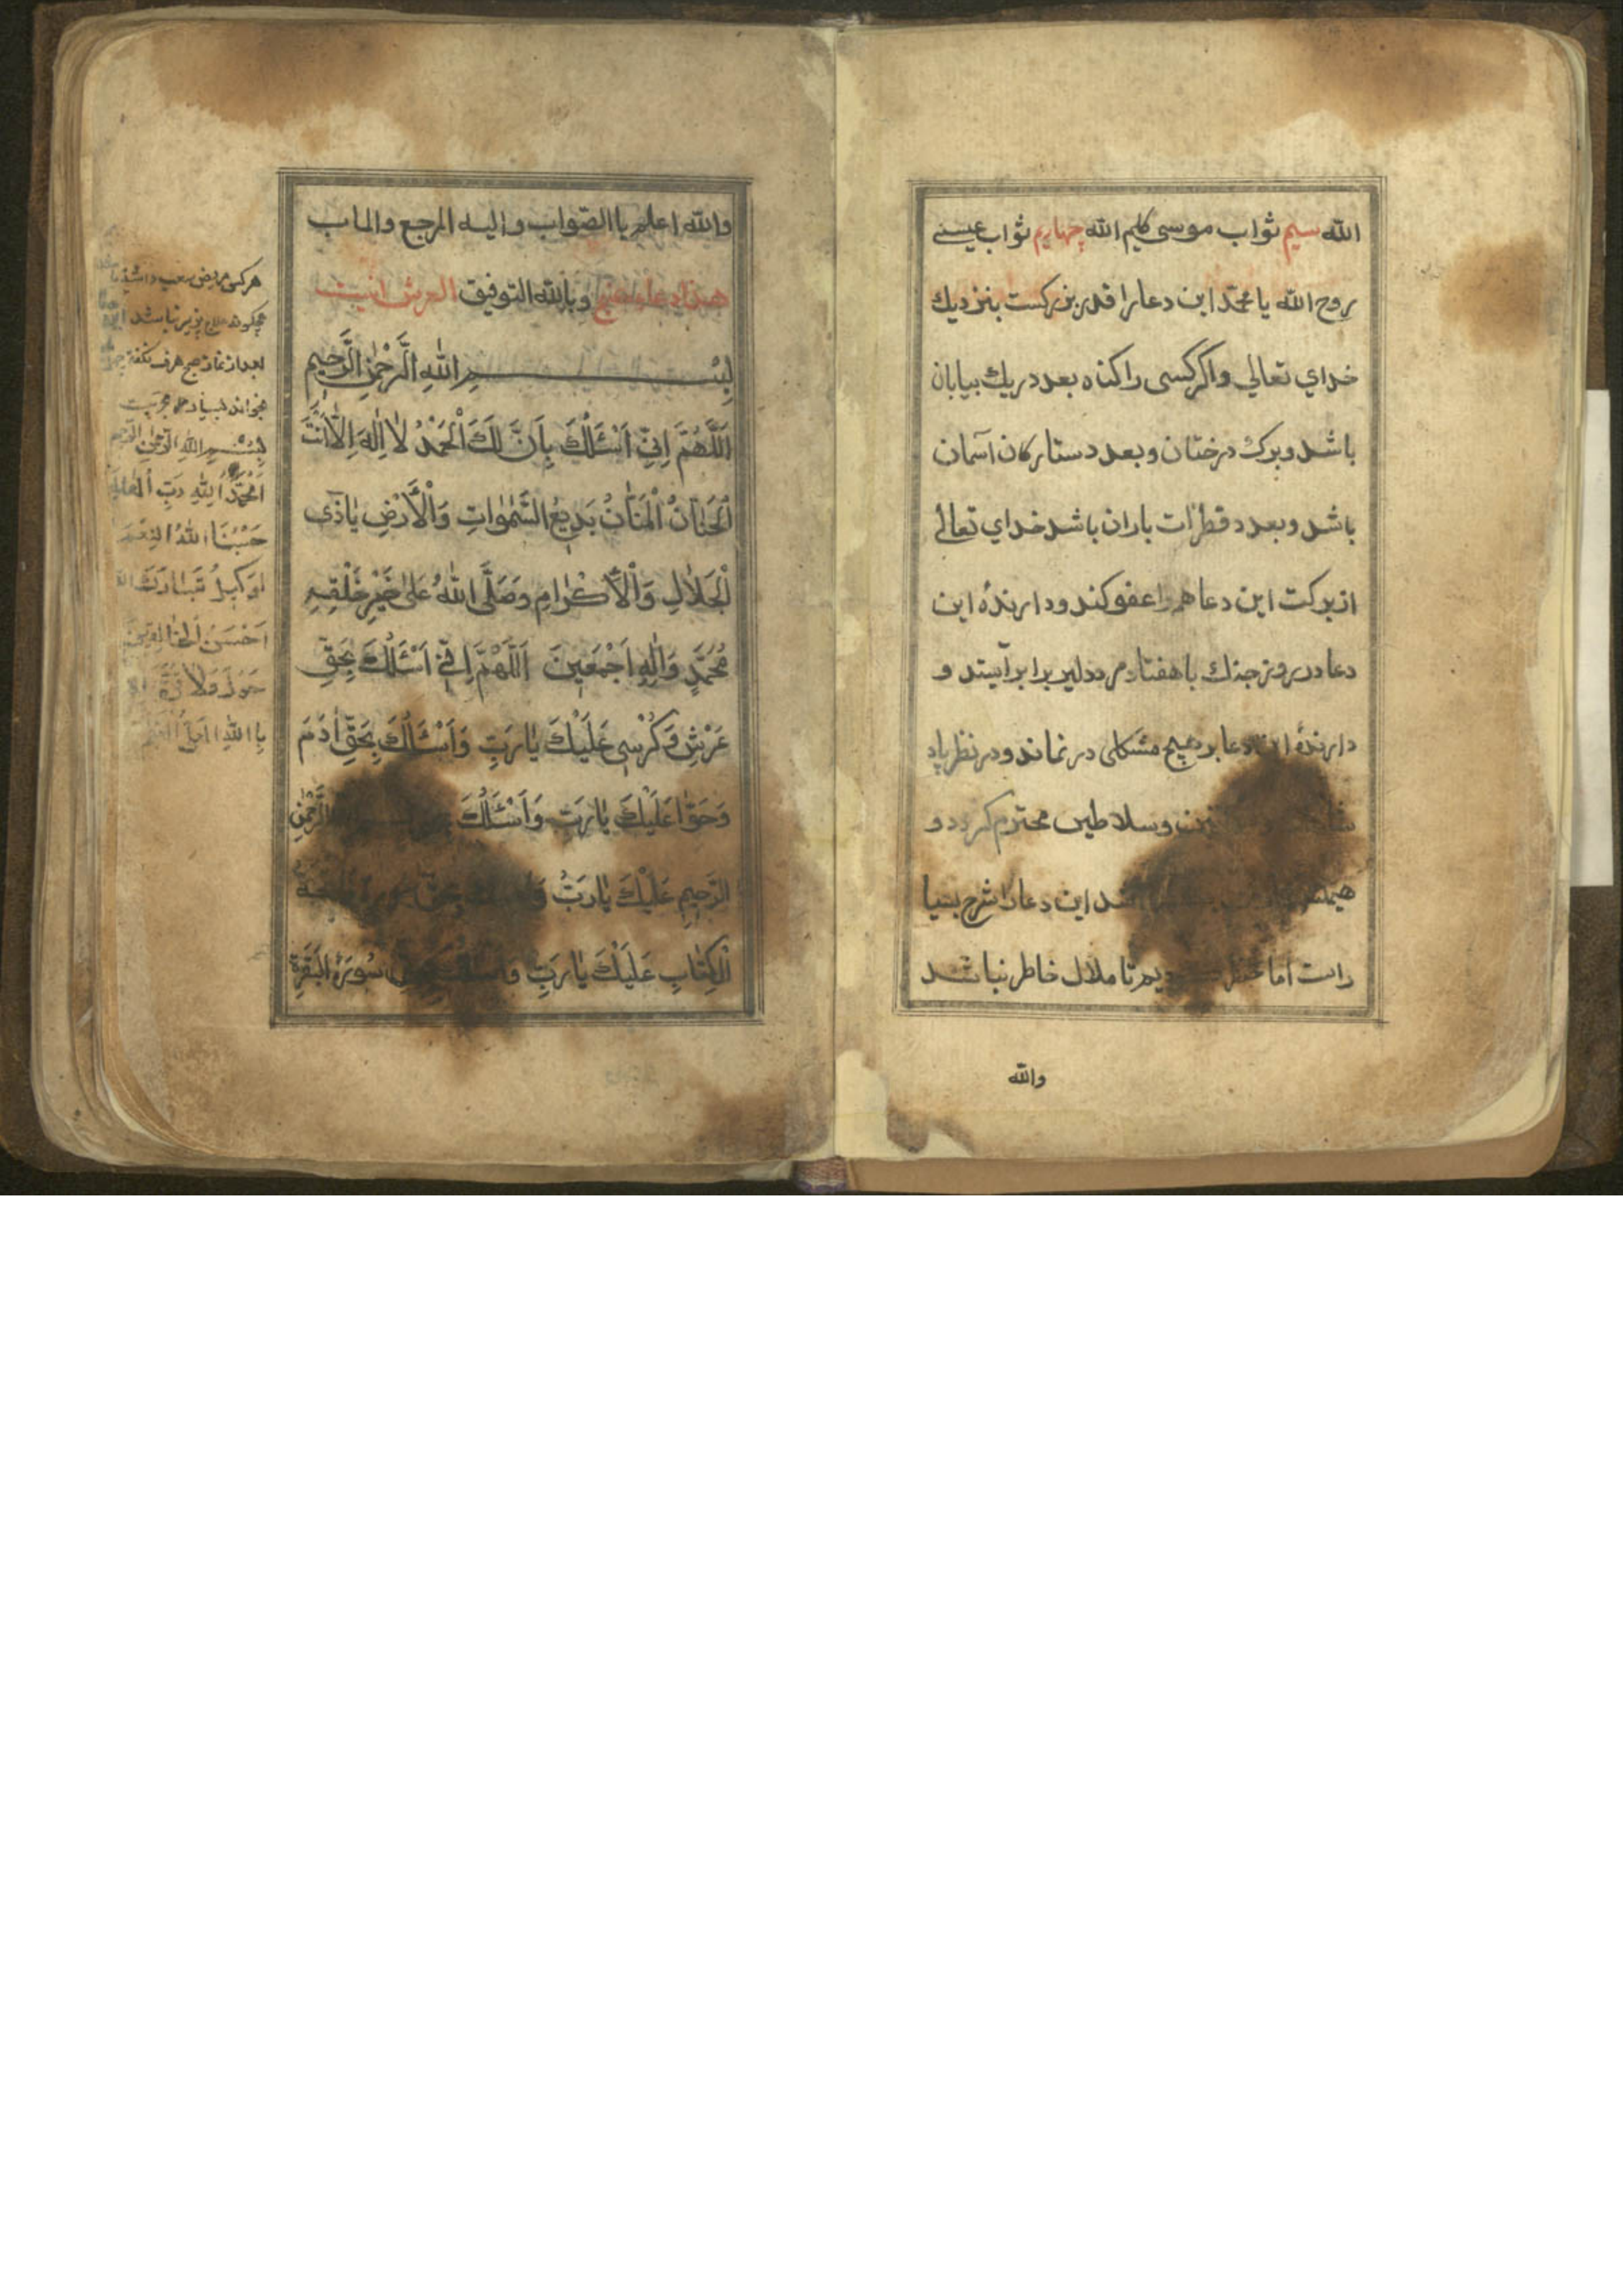 الله سیم ثواب موسی کلیم الله چهاریم ثواب عیسے
روح الله یا محمّد این دعا را قدر بزرکست بنزدیك
خدای تعالی واکر کسی را کناه بعدد ریك بیابان
باشد وبرك درختان وبعدد ستارکان آسمان
باشد وبعدد قطرات باران باشد خدای تعالی
از برکت این دعا همه را عفو کند ودارندهٔ این
دعا در روز جنك با هفتاد مرد دلیر برابر آیستد و
دارندهٔ این دعا بر هیچ مشکلی در نماند ودر نظر پاد
وسلاطین محترم کردد و
این دعا را شرح بسیا
راست اما تا ملال خاطر نباشد
والله
والله اعلم باالصّواب والیه المرجع والماب
هذا دعاء وباالله التوفیق العرش اینست
بِسْمِ اللهِ الرَّحْمٰنِ الرَّحِيمِ
اَللّٰهُمَّ اِنّیِ اَسْئَلُكَ بِاَنَّ لَكَ الْحَمْدُ لٰا اِلٰهَ اِلّٰا اَنْتَ
الْحَنّٰانُ الْمَنّٰانُ بَدِیعُ السَّمٰوٰاتِ وَالْاَرْضِ یٰا ذَی
الْجَلٰالِ وَالْاِکْرٰامِ وَصَلَّی اللّٰهُ عَلیٰ خَیْرِ خَلْقِهِ
مُحَمَّدٍ وَاٰلِهِ اَجْمَعِینَ اَللّٰهُمَّ اِنّیِ اَسْئَلُكَ بِحَقِّ
عَرْشِ وَکُرْسِی عَلَیْكَ یٰا رَبِّ وَاَسْئَلُكَ بِحَقِّ اٰدَمَ
وَحَوّٰا عَلَیْكَ یٰا رَبِّ وَاَسْئَلُكَ الرَّحْمٰنِ
الرَّحِیمِ عَلَیْكَ یٰا رَبِّ
الْکِتٰابِ عَلَیْكَ یٰا رَبِّ سُورَةِ الْبَقَرَةِ
هر کس مریض صعب داشته
بعد از نماز صبح
بخواند
بِسْمِ اللهِ الرَّحْمٰنِ الرَّحِیمِ
اَلْحَمْدُ لِلّٰهِ رَبِّ الْعٰالَمِ
حَسْبُنَا اللّٰهُ
الْوَکِیلُ تَبٰارَكَ
اَحْسَنُ الْخٰالِقِینَ
حَولَ وَلاٰ قُوَّةَ
بِااللّٰهِ